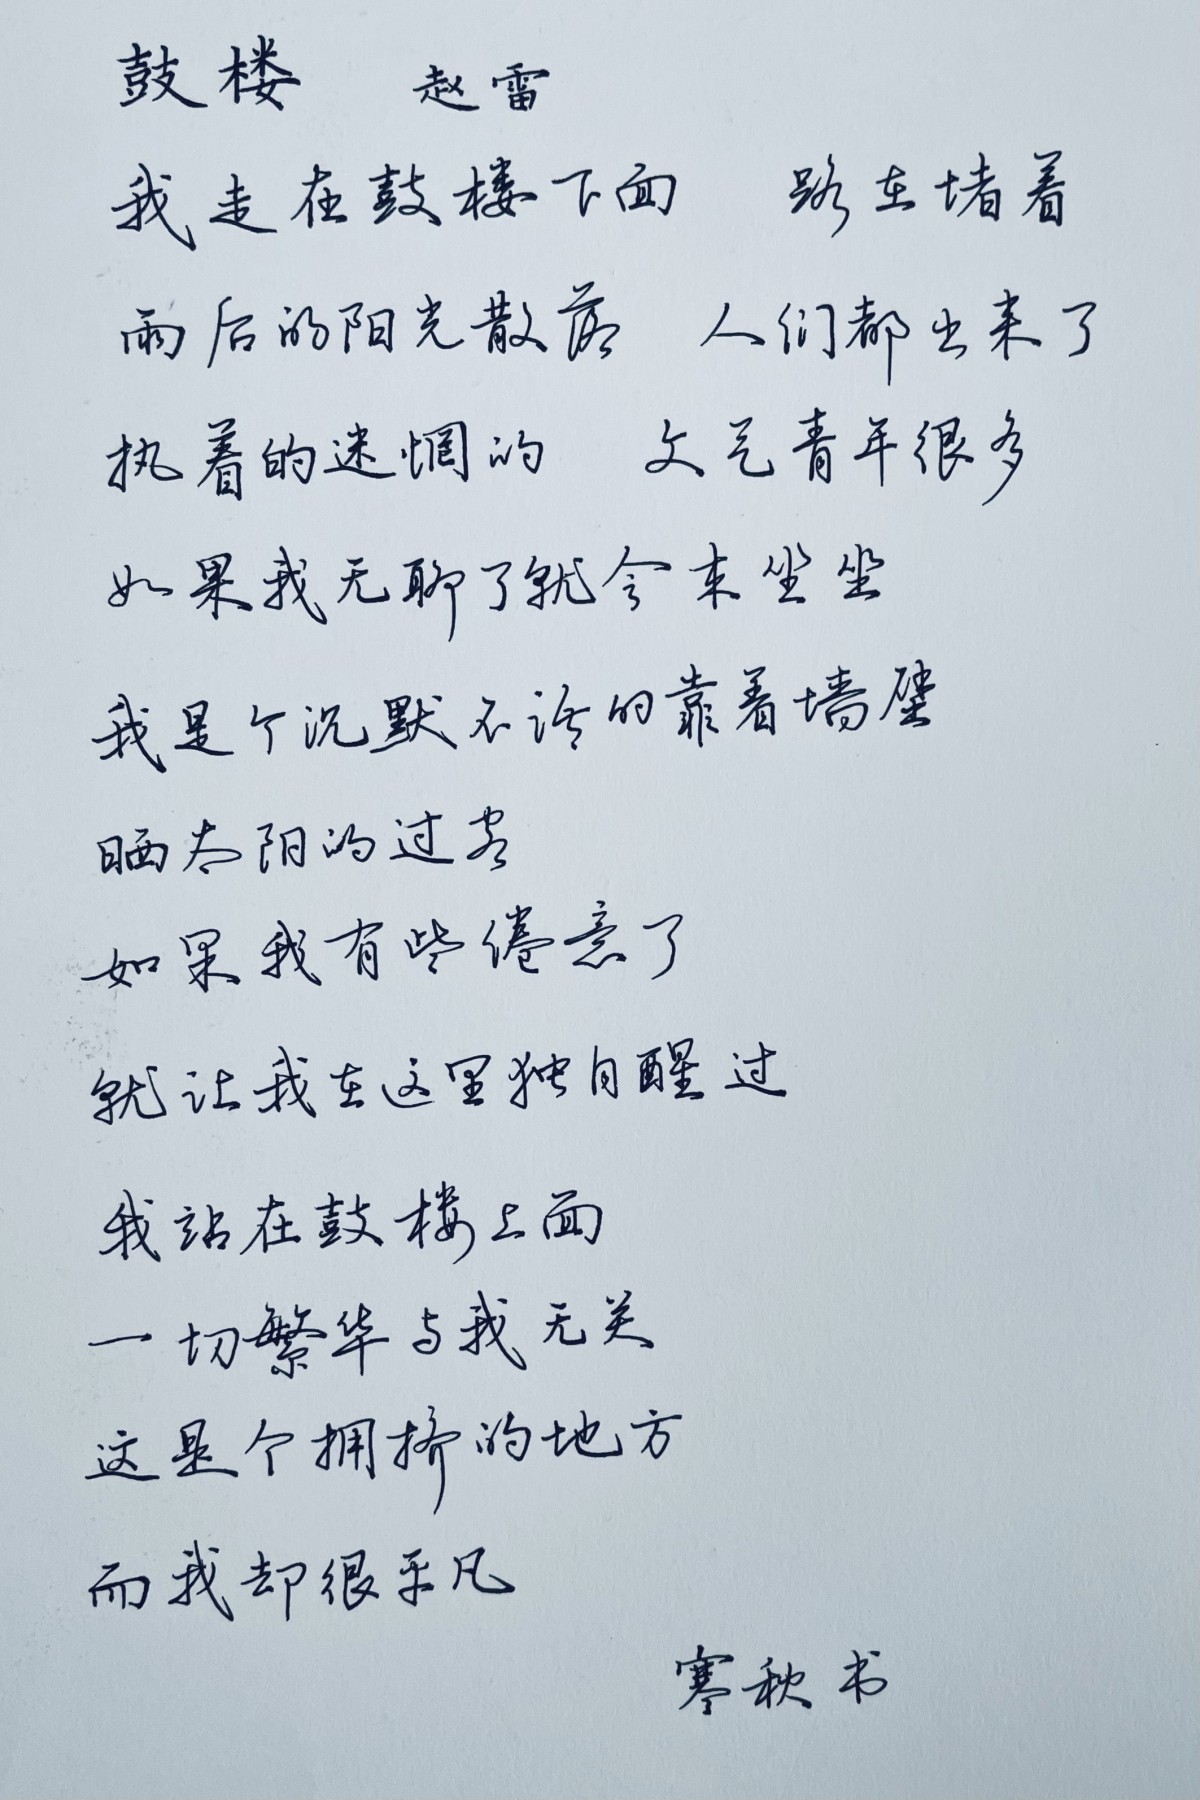 鼓楼 赵雷
我走在鼓楼下面 路在堵着
雨后的阳光散落 人们都出来了
执着的迷惘的 文艺青年很多
如果我无聊了就会来坐坐
我是个沉默不语的靠着墙壁
晒太阳的过客
如果我有些倦意了
就让我在这里独自醒过
我站在鼓楼上面
一切繁华与我无关
这是个拥挤的地方
而我却很平凡
寒秋书